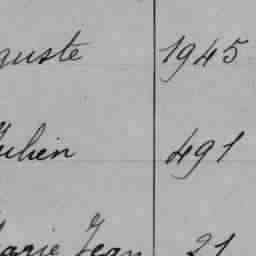 guste 1945
Julien 491
Marie Jean 21